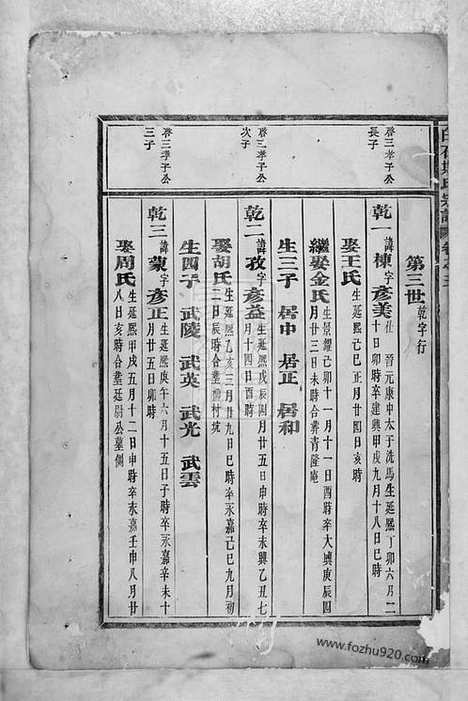 第三世 乾字行
啓三孝子公
長子
乾一 諱棟字彥美 仕晉元康中太子洗馬生延熙丁卯六月二
十日卯時卒建興甲戌九月十八日巳時
娶王氏 生延熙己巳正月廿四日亥時
繼娶金氏 生景耀己卯十一月十一日酉時卒大興庚辰四
月廿三日未時合葬青隆庵
生三子 居中 居正 居和
啓三孝子公
次子
乾二 諱孜字彥益 生延熙戊辰四月廿五日申時卒永興乙丑七
月十四日酉時
娶胡氏 生延熙乙亥三月廿九日巳時卒永嘉己巳九月初
二日辰時合葬 村坑
生四子 武陵 武英 武光 武雲
啓三孝子公
三子
乾三 諱蒙字彥正 生延熙庚午六月十五日子時卒永嘉辛未十
月廿五日卯時
娶周氏 生延熙甲戌五月十二日申時卒永嘉壬申八月廿
八日亥時合葬廷尉公墓側
www.fozhu920.com